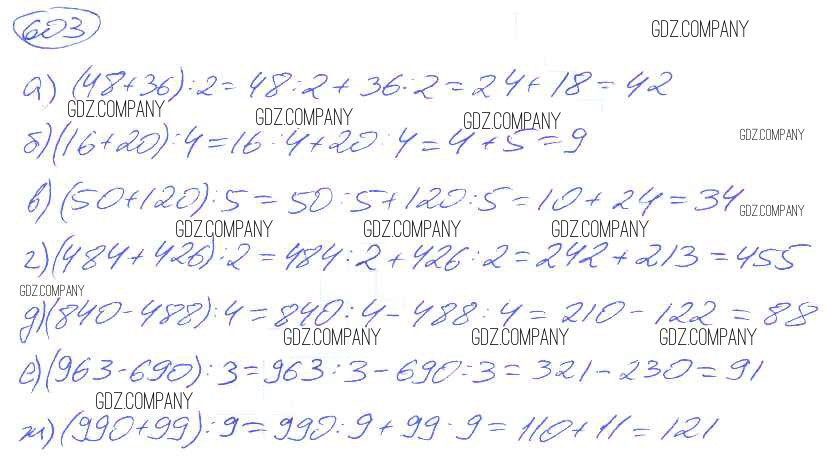 603
GDZ.COMPANY
а) (48+36):2=48:2+36:2=24+18=42
GDZ.COMPANY GDZ.COMPANY GDZ.COMPANY
б) (16+20):4=16:4+20:4=4+5=9
GDZ.COMPANY
в) (50+120):5=50:5+120:5=10+24=34
GDZ.COMPANY
GDZ.COMPANY GDZ.COMPANY GDZ.COMPANY
г) (484+426):2=484:2+426:2=242+213=455
GDZ.COMPANY
д) (840-488):4=840:4-488:4=210-122=88
GDZ.COMPANY GDZ.COMPANY GDZ.COMPANY
е) (963-690):3=963:3-690:3=321-230=91
GDZ.COMPANY
ж) (990+99):9=990:9+99:9=110+11=121